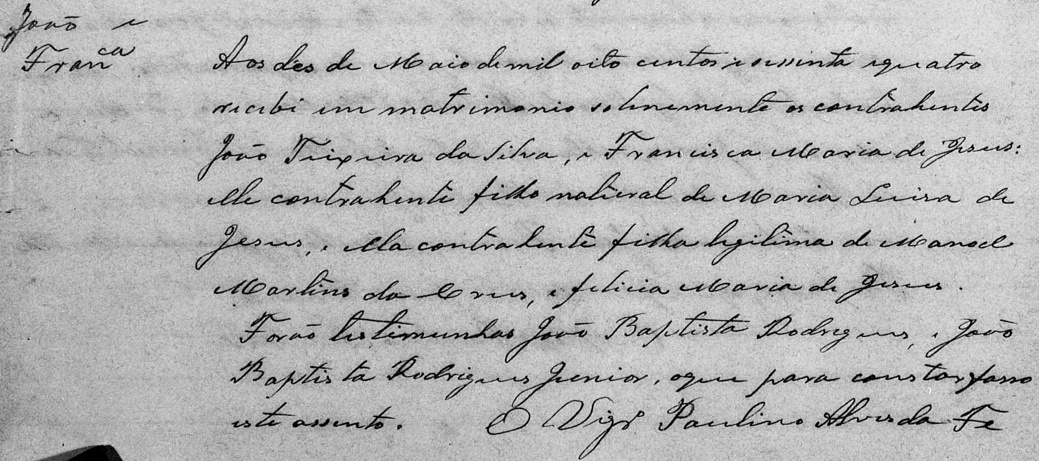 João e
Fran^ca
Aos des de Maio de mil oito centos e sessenta e quatro
recibi em matrimonio solenemente os contrahentes
João Teixeira da Silva, e Francisca Maria de Jesus:
elle contrahente filho natural de Maria Luisa de
Jesus, e ella contrahente filha legitima de Manoel
Martins da Crus, e felicia Maria de Jesus.
Forão testimunhas João Baptista Rodrigues, e João
Baptista Rodrigues Junior, oque para constar fasso
este assento. O Vigr^o Paulino Alves da Fe